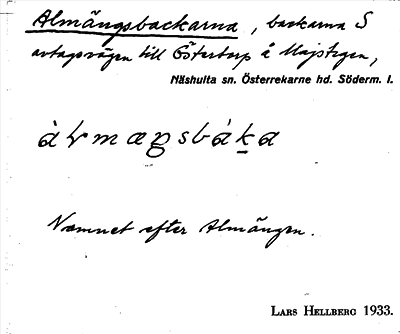 Almängsbackarna, backarna S
avtagsvägen till Östertorp å Majstegen,
Näshulta sn. Österrekarne hd. Söderm. l.
Namnet efter Almängen.
LARS HELLBERG 1933.